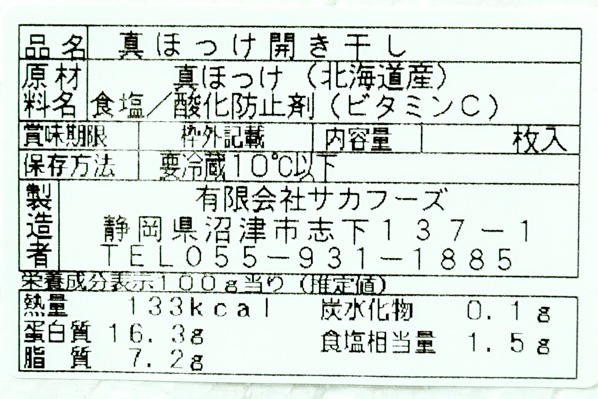 品名 真ほっけ開き干し
原材 真ほっけ（北海道産）
料名 食塩／酸化防止剤（ビタミンC）
賞味期限 枠外記載 内容量 枚入
保存方法 要冷蔵10℃以下
製造者 有限会社サカフーズ
静岡県沼津市志下137-1
TEL055-931-1885
栄養成分表示100g当り（推定値）
熱量 133kcal 炭水化物 0.1g
蛋白質 16.3g 食塩相当量 1.5g
脂質 7.2g